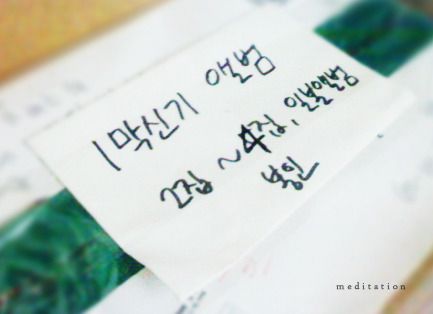 1막신기 앨범
2집 ~4집, 일본앨범
봉인
meditation